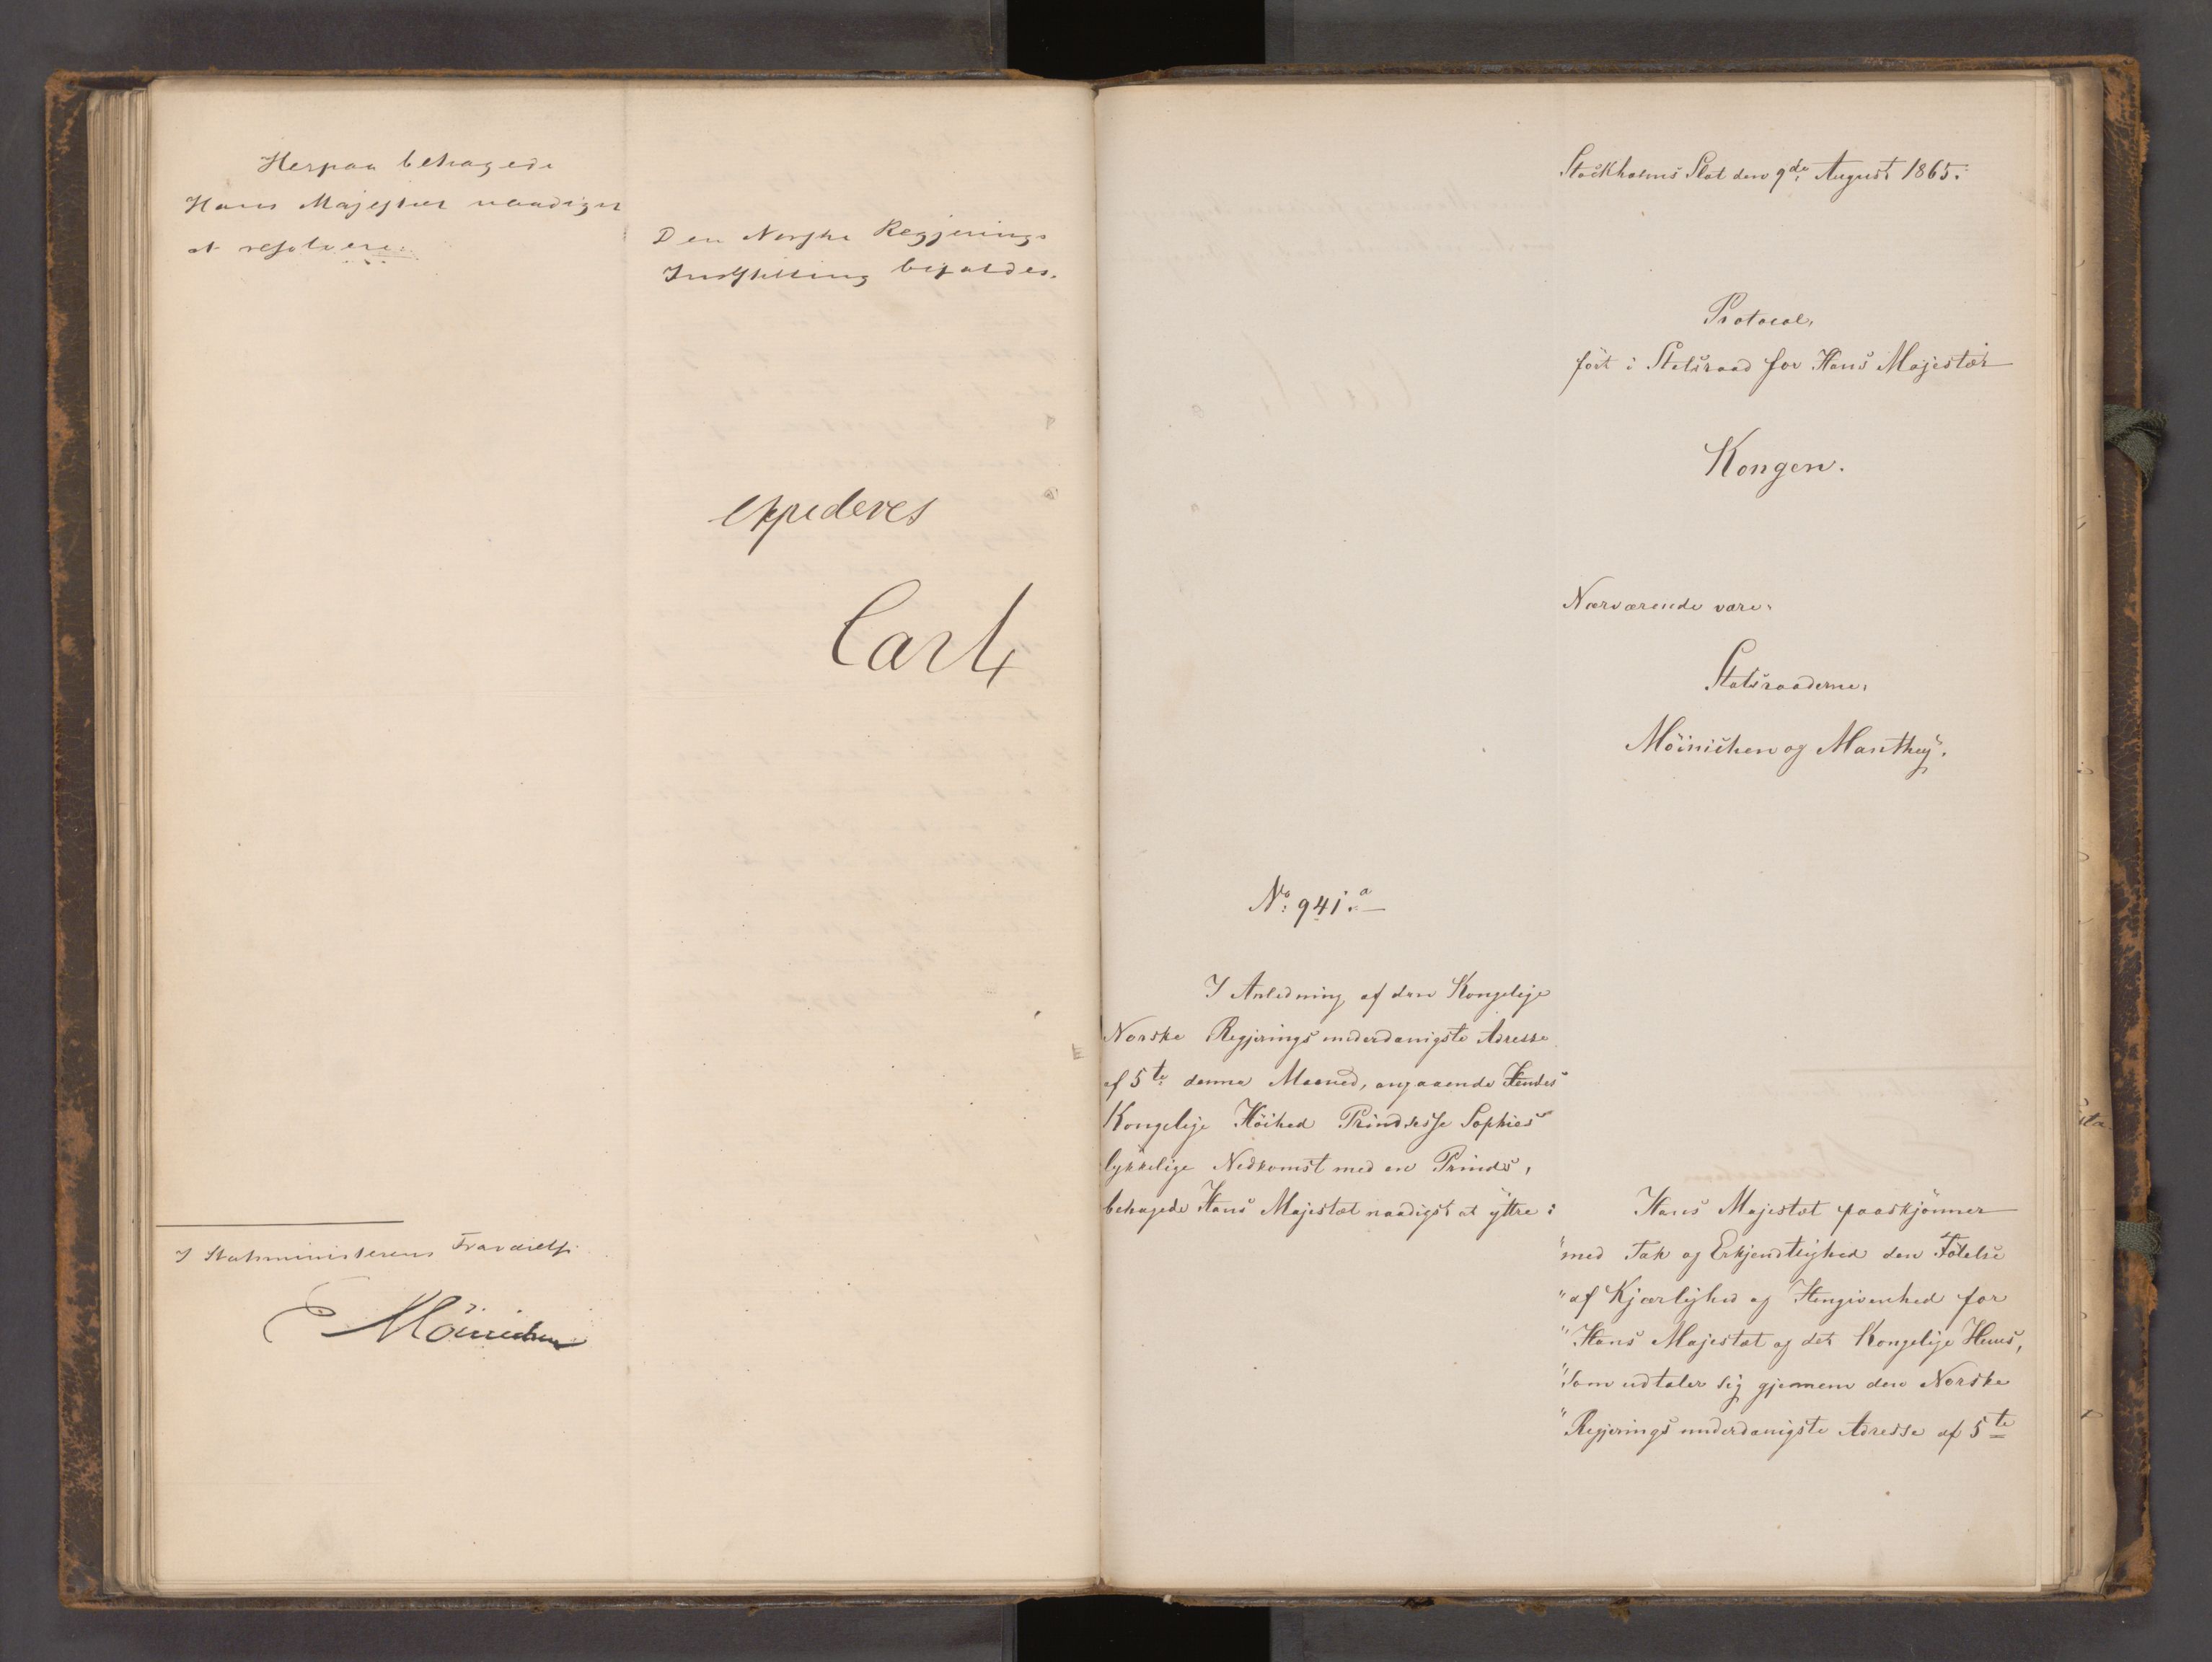 Herpaa behagede
Hans Majestæt naadigst
at resolvere:
Den Norske Regjerings
Indstilling bifaldes.
expederes
Carl
I Statsministerens Fraværelse
E Möinichen
Stockholms Slot den 9de August 1865.
Protocol,
ført i Statsraad for Hans Majestæt
Kongen.
Nærværende vare:
Statsraaderne:
Möinichen og Manthey.
No: 941.a
I Anledning af den Kongelige
Norske Regjerings underdanigste Adresse
af 5te denne Maaned, angaaende Hendes
Kongelige Höihed Prindsesse Sophies
lykkelige Nedkomst med en Prinds,
behagede Hans Majestæt naadigst at yttre:
Hans Majestæt paaskjönner
"med Tak og Erkjendtlighed den Følelse
"af Kjærlighed og Hengivenhed for
"Hans Majestæt og det Kongelige Huus,
"som udtaler sig gjennem den Norske
"Regjerings underdanigste Adresse af 5te